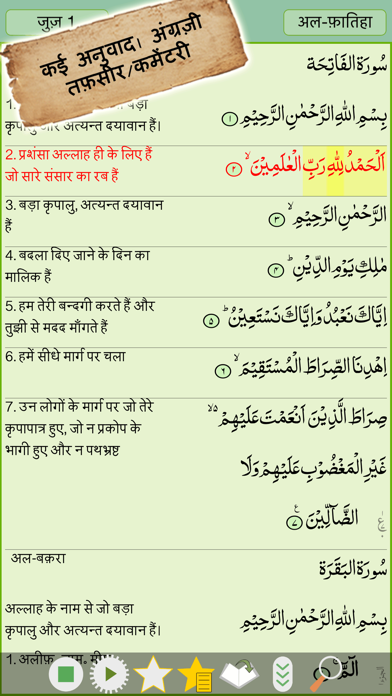 जुज़ 1
अल-फ़ातिहा
कई अनुवाद। अंग्रज़ी
तफ़सीर/कमेंटरी
سُورَةُ الفَاتِحَة
1.
बड़ा
कृपालु और अत्यन्त दयावान हैं।
بِسْمِ اللّٰهِ الرَّحْمٰنِ الرَّحِيْمِ ۝١
2. प्रशंसा अल्लाह ही के लिए हैं
जो सारे संसार का रब हैं
اَلْحَمْدُ لِلّٰهِ رَبِّ الْعٰلَمِيْنَ ۙ ۝٢
3. बड़ा कृपालु, अत्यन्त दयावान
हैं
الرَّحْمٰنِ الرَّحِيْمِ ۙ ۝٣
4. बदला दिए जाने के दिन का
मालिक हैं
مٰلِكِ يَوْمِ الدِّيْنِ ؕ ۝٤
5. हम तेरी बन्दगी करते हैं और
तुझी से मदद माँगते हैं
اِيَّاكَ نَعْبُدُ وَاِيَّاكَ نَسْتَعِيْنُ ؕ ۝٥
6. हमें सीधे मार्ग पर चला
اِهْدِنَا الصِّرَاطَ الْمُسْتَقِيْمَ ۙ ۝٦
7. उन लोगों के मार्ग पर जो तेरे
कृपापात्र हुए, जो न प्रकोप के
भागी हुए और न पथभ्रष्ट
صِرَاطَ الَّذِيْنَ اَنْعَمْتَ عَلَيْهِمْ ۙ۬
غَيْرِ الْمَغْضُوْبِ عَلَيْهِمْ وَلَا
الضَّآلِّيْنَ ۝٧
अल-बक़रा
سُورَةُ البَقَرَة
अल्लाह के नाम से जो बड़ा
कृपालु और अत्यन्त दयावान हैं।
بِسْمِ اللّٰهِ الرَّحْمٰنِ الرَّحِيْمِ
1. अलीफ़॰
الٓمّٓ